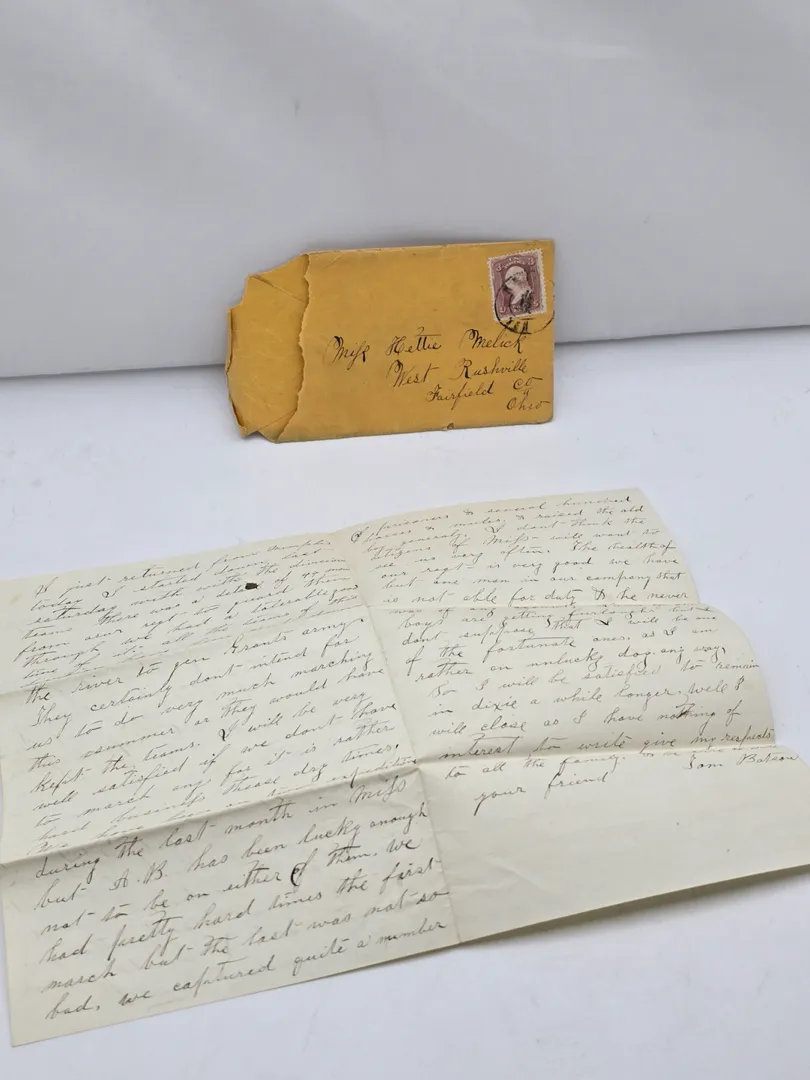 Miss Hettie Melick
West Rushville
Fairfield Co
Ohio
I just returned from Memphis
today I started down last
saturday with the division
teams there was a detail of 40 men
from our regt to guard them
through we had a tolerable good
time of it all the teams of this
the river to gen Grants army
They certainly dont intend for
us to do very much marching
this summer or they would have
kept the teams. I will be very
well satisfied if we dont have
to march any for it is rather
hard business these dog times,
during the last month in Miss
but A.B. has been lucky enough
not to be on either of them. we
had pretty hard times the first
march but the last was not so
bad, we captured quite a number
of prisoners & several hundred
horses & mules, & raised the old
by generaly. I dont think the
citizens of Miss will want to
see us very often. The health of
our regt is very good we have
but one man in our company that
is not able for duty & he never
was of any
boys are getting furloughs but I
dont suppose that I will be one
of the fortunate ones. as I am
rather an unlucky dog any way,
So I will be satisfied to remain
in dixie a while longer. Well I
will close as I have nothing of
interest to write give my respects
to all the family.
your friend Tom Batson